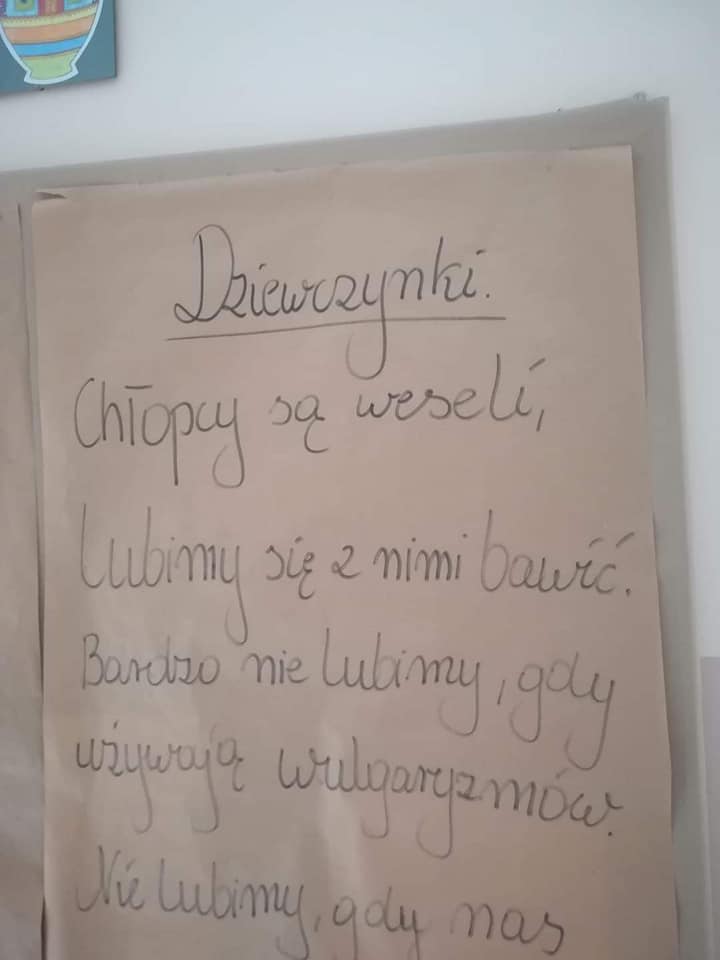 Dziewczynki.
Chłopcy są weseli,
lubimy się z nimi bawić.
Bardzo nie lubimy, gdy
używają wulgaryzmów.
Nie lubimy, gdy nas